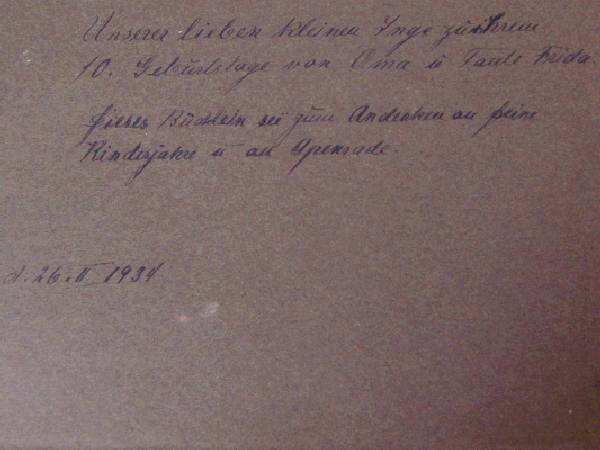 Unserer lieben kleinen Inge zu ihrem
10. Geburtstage von Oma u Tante Frida.
Dieses Büchlein sei zum Andenken an seine
Kinderjahre u an Apenrade.
d. 26. II 1934